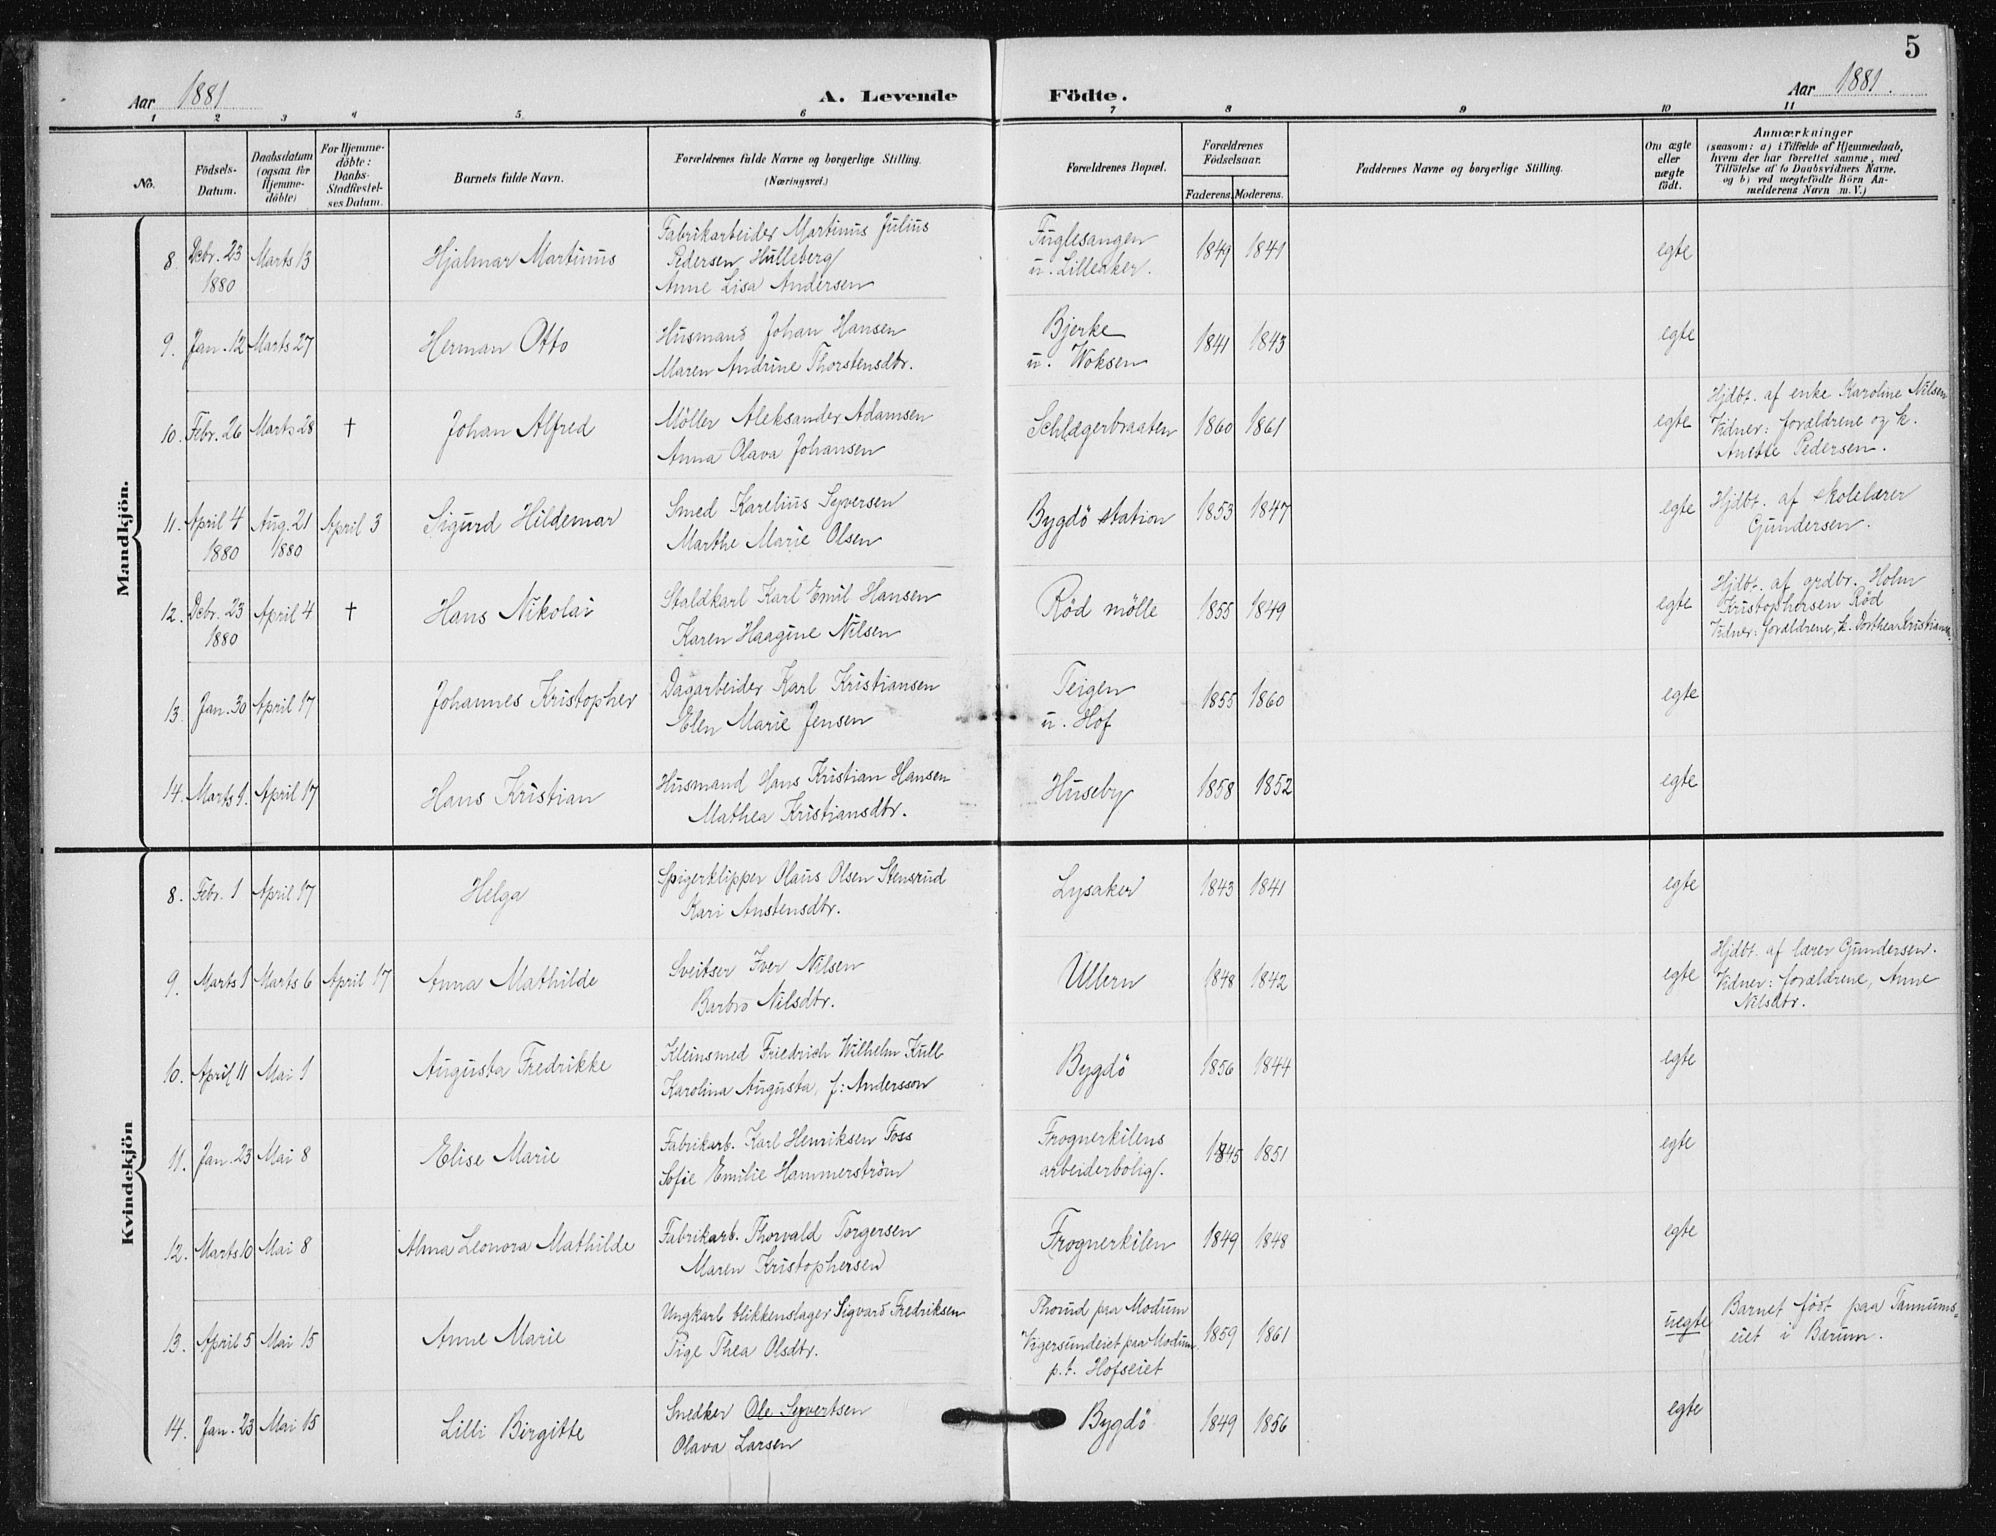 5
Aar 1881
A. Levende Födte.
Aar 1881.
1 2 3 4 5 6 7 8 9 10 11
No.
Födsels-Datum.
Daabsdatum (ogsaa for Hjemme-döbte)
For Hjemme-döbte: Daabs-Stadfæstel-ses Datum.
Barnets fulde Navn.
Forældrenes fulde Navne og borgerlige Stilling. (Næringsvei.)
Forældrenes Bopæl.
Forældrenes Födselsaar.
Faderens. Moderens.
Faddernes Navne og borgerlige Stilling.
Om ægte eller uægte födt.
Anmærkninger
(saasom: a) i Tilfælde af Hjemmedaab, hvem der har forrettet samme, med Tilföielse af to Daabsvidners Navne, og b) ved uægtefödte Börn An-melderens Navn m. V.)
Mandkjön.
8. Dcbr. 23 1880 Marts 13 Hjalmar Martinus
Fabrikarbeider Martinus Julius
Pedersen Hulleberg
Anne Lisa Andersen
Fuglesangen
u. Lilleaker.
1849 1841 egte
9. Jan. 12 Marts 27 Herman Otto
Husmand Johan Hansen
Maren Andrine Thorstensdtr.
Bjerke
u. Woksen
1841 1843 egte
10. Febr. 26 Marts 28 † Johan Alfred
Möller Aleksander Adamsen
Anna Olava Johansen
Schlægerbraaten 1860 1861 egte
Hjdbt. af enke Karoline Nilsen
Vidner: forældrene og k.
Anette Pedersen.
11. April 4 1880 Aug. 21 1880 April 3 Sigurd Hildemar
Smed Karelius Syversen
Marthe Marie Olsen
Bygdö station 1853 1847 egte
Hjdbt. af skolelærer
Gundersen.
12. Dcbr. 23 1880 April 4 † Hans Nikolai
Staldkarl Karl Emil Hansen
Karen Haagine Nilsen
Röd mölle 1855 1849 egte
Hjdbt. af grdbr. Holm
Kristophersen Röd
Vidner: forældrene, k. Dorthea Kristians.
13. Jan. 30 April 17 Johannes Kristopher
Dagarbeider Karl Kristiansen
Elen Marie Jensen
Teigen
u. Hof
1855 1860 egte
14. Marts 9. April 17 Hans Kristian
Husmand Hans Kristian Hansen
Mathea Kristiansdtr.
Huseby 1858 1852 egte
Kvindekjön
8. Febr. 1 April 17 Helga
Spigerklipper Olaus Olsen Stensrud
Kari Anstensdtr.
Lysaker 1843 1841 egte
9. Marts 1 Marts 6 April 17 Anna Mathilde
Sveitser Iver Nilsen
Barbro Nilsdtr.
Ullern 1848 1842 egte
Hjdbt. af lærer Gundersen.
Vidner: forældrene, Anne
Nilsdtr.
10. April 11 Mai 1 Augusta Fredrikke
Kleinsmed Friedrich Wilhelm Kull
Karolina Augusta, f: Andersson
Bygdö 1856 1844 egte
11. Jan. 23 Mai 8 Elise Marie
Fabrikarb. Karl Henriksen Foss
Sofie Emilie Hammerström
Frognerkilens
arbeiderbolig.
1845 1851 egte
12. Marts 10 Mai 8 Alma Leonora Mathilde
Fabrikarb. Thorvald Torgersen
Maren Kristophersen
Frognerkilen 1849 1848 egte
13. April 5 Mai 15 Anne Marie
Ungkarl blikkenslager Sigvard Fredriksen
Pige Thea Olsdtr.
Thorud paa Modum
Vigersundeiet paa Modum
p.t. Hofseiet
1859 1861 uegte
Barnet födt paa Tanums-
eiet i Bærum.
14. Jan. 23 Mai 15 Lilli Birgitte
Snedker Ole Syvertsen
Olava Larsen
Bygdö 1849 1856 egte